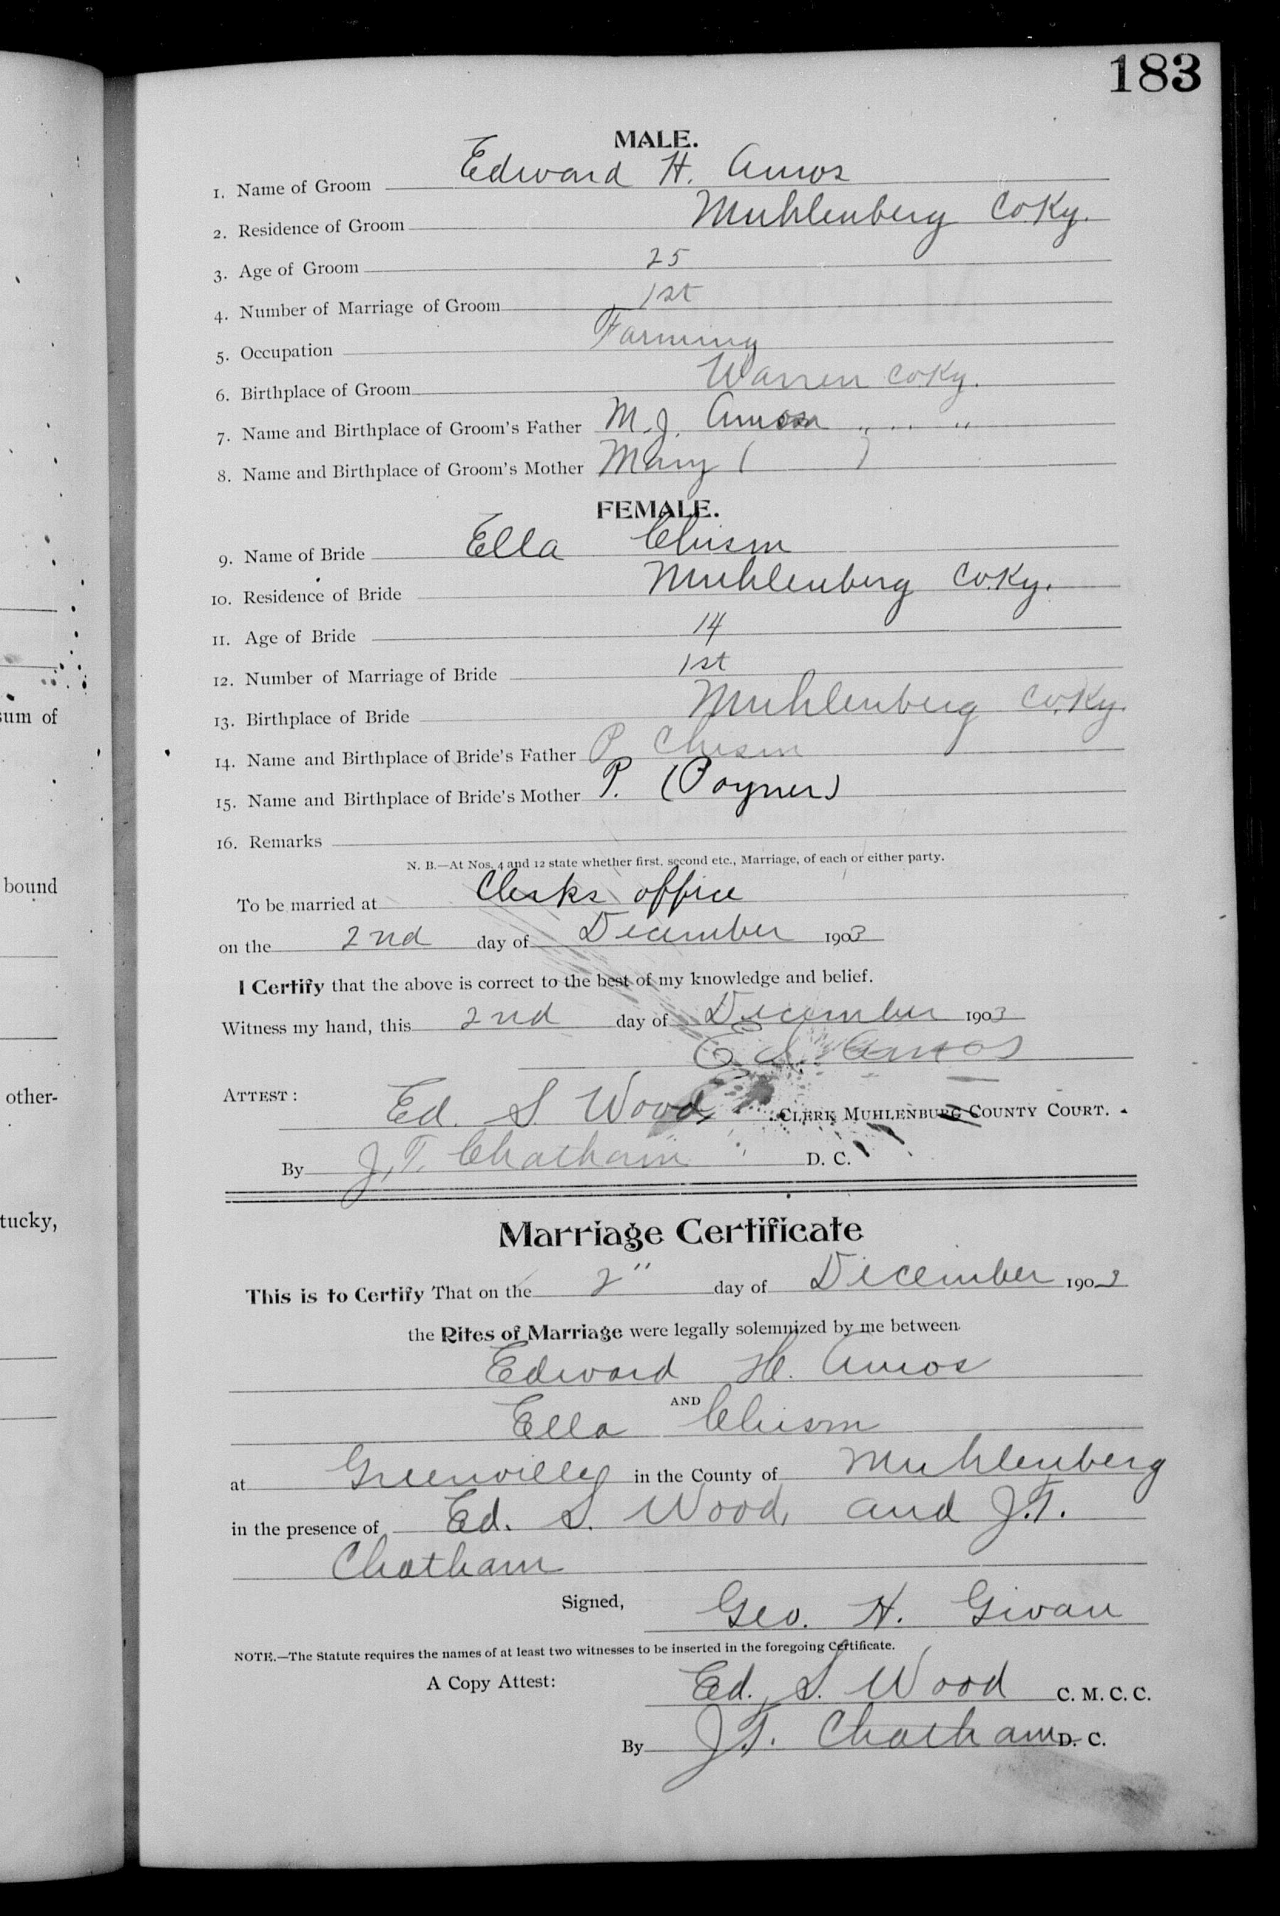 183
MALE.
1. Name of Groom Edward H. Amos
2. Residence of Groom Muhlenberg Co Ky.
3. Age of Groom 25
4. Number of Marriage of Groom 1st
5. Occupation Farming
6. Birthplace of Groom Warren Co Ky.
7. Name and Birthplace of Groom's Father M. J. Amos " " "
8. Name and Birthplace of Groom's Mother Mary ( )
FEMALE.
9. Name of Bride Ella Chism
10. Residence of Bride Muhlenberg Co. Ky.
11. Age of Bride 14
12. Number of Marriage of Bride 1st
13. Birthplace of Bride Muhlenberg Co. Ky.
14. Name and Birthplace of Bride's Father P Chism
15. Name and Birthplace of Bride's Mother P. (Poyner)
16. Remarks
N. B.—At Nos. 4 and 12 state whether first, second etc., Marriage, of each or either party.
To be married at Clerks office
on the 2nd day of December 1903
I Certify that the above is correct to the best of my knowledge and belief.
Witness my hand, this 2nd day of December 1903
Amos
ATTEST: Ed. S. Wood, CLERK MUHLENBURG COUNTY COURT.
By J. T. Chatham D. C.
Marriage Certificate
This is to Certify That on the 2" day of December 1903
the Rites of Marriage were legally solemnized by me between
Edward H. Amos
AND
Ella Chism
at Greenville in the County of Muhlenberg
in the presence of Ed. S. Wood, and J.T.
Chatham
Signed, Geo. H. Givan
NOTE.—The Statute requires the names of at least two witnesses to be inserted in the foregoing Certificate.
A Copy Attest: Ed. S. Wood C. M. C. C.
By J.T. Chatham D. C.
sum of
bound
other-
tucky,